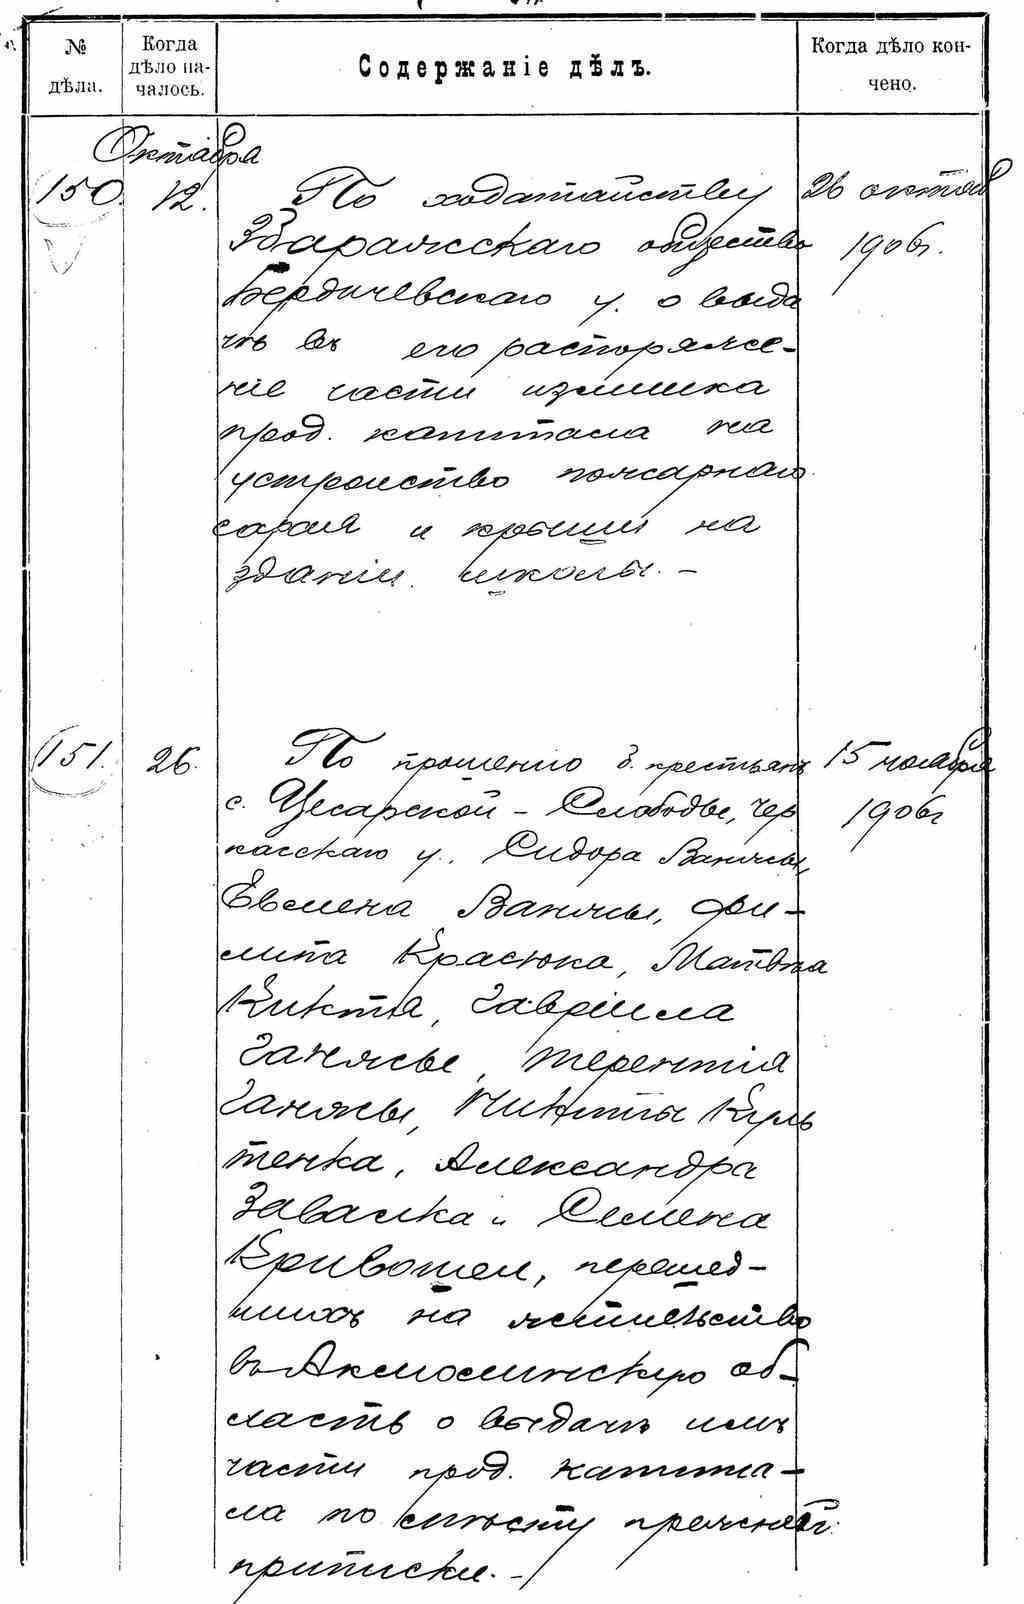 №
дѣла.
Когда
дѣло на-
чалось.
Содержаніе дѣлъ.
Когда дѣло кон-
чено.
Октября
150. 12. По ходатайству 26 октяб
Збаражскаго общества 1906г.
Бердичевскаго у. о выда
чѣ въ его распоряже-
ніе части излишка
прод. капитала на
устройство пожарнаго
сарая и крыши на
зданіи школы. –
151. 26. По прошенію б. крестьянъ 15 ноября
с. Цесарской - Слободы, Чер 1906г
касскаго у. Сидора Ванжы,
Евмена Ванжы, Фи-
липа Красюка, Матвѣя
Киктя, Гавріила
Ганжы, Терентія
Ганжы, Никиты Куль
тенка, Александра
Завалка и Семена
Кривошеи, перешед-
шихъ на жительство
въ Акмолинскую об-
ласть о выдачѣ имъ
части прод. капита-
ла по мѣсту прежней
приписки. –